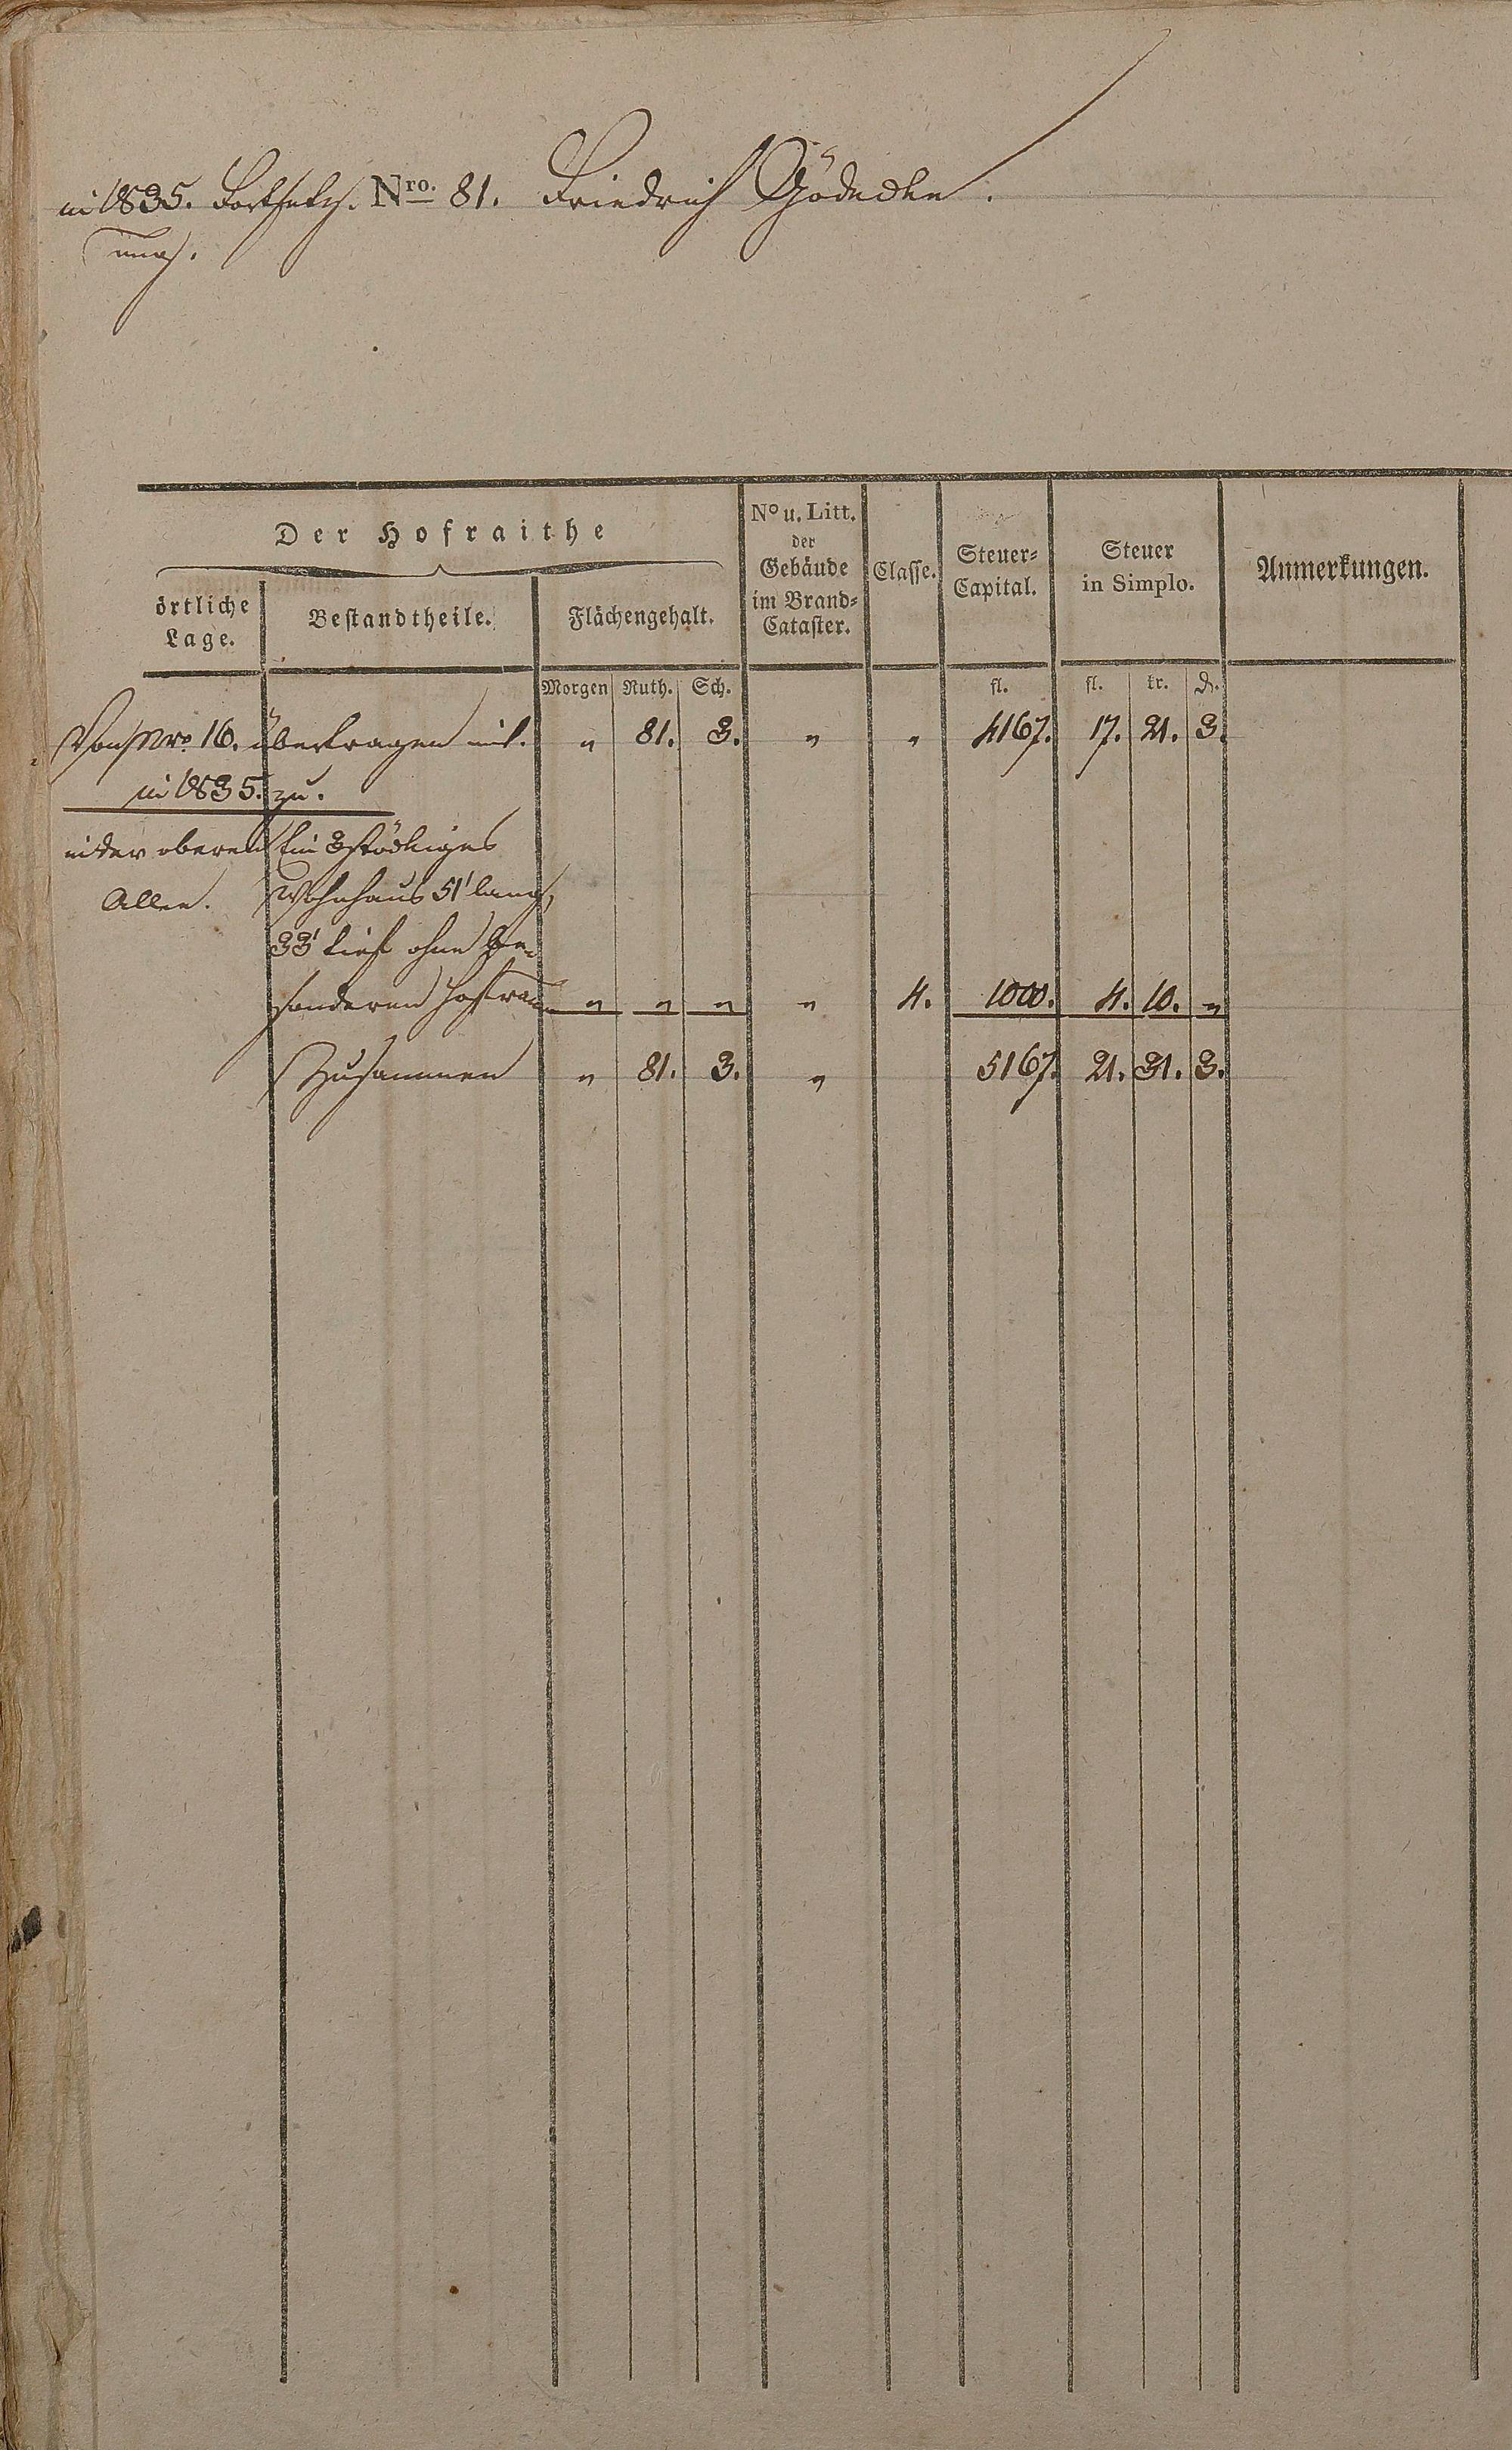 in 1835. Fortsetz. Nro. 81. Friedrich Gödecke.
ung.
Der Hofraithe
örtliche Lage.
Bestandtheile.
Flächengehalt.
No u. Litt. der Gebäude im Brand-Cataster.
Classe.
Steuer-Capital.
Steuer in Simplo.
Anmerkungen.
Morgen Ruth. Sch. fl. fl. kr. d.
Von Nro 16. übertragen mit. " 81. 3. " " 4167. 17. 21. 3.
in 1835. zu.
in der oberen Ein 3stöckiges
Allee. Wohnhaus 51' lang,
33' tief ohne be-
sonderen Hofraum " " " " 4. 1000. 4. 10. "
Zusammen " 81. 3. " 5167. 21. 31. 3.